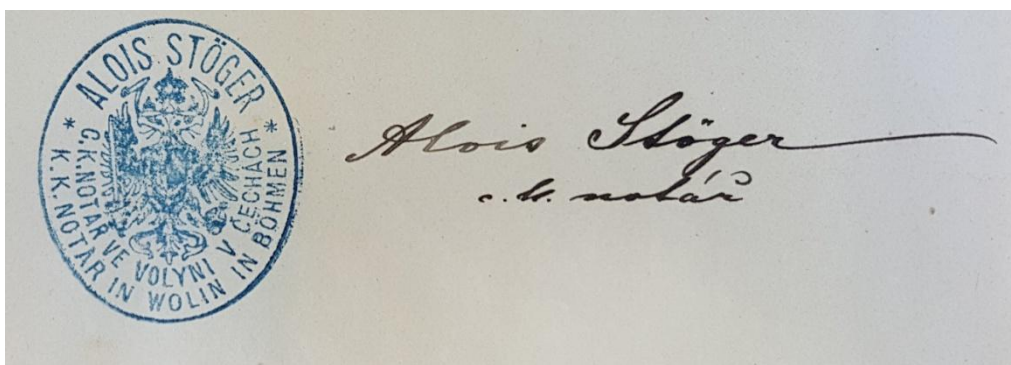 ALOIS STÖGER
C.K. NOTÁŘ VE VOLYNI V ČECHÁCH
* K. K. NOTAR IN WOLIN IN BÖHMEN *
Alois Stöger
c. k. notář